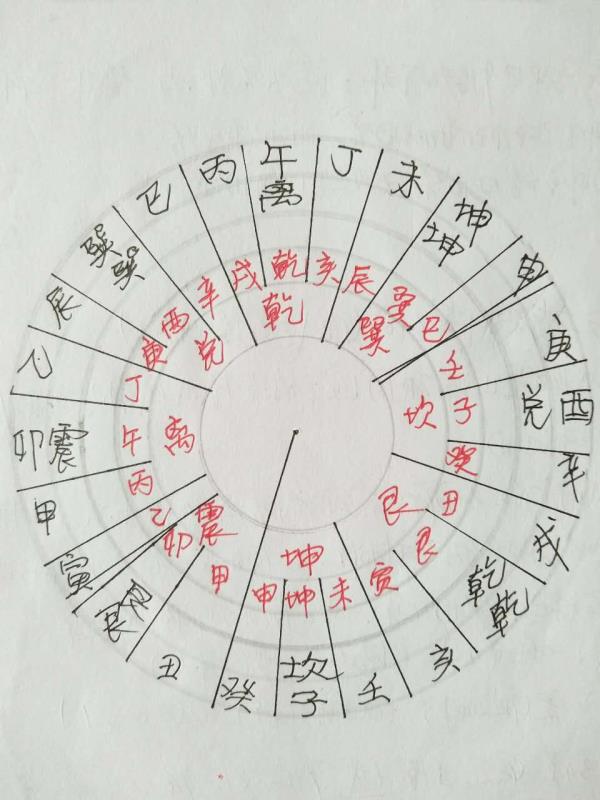 午
离
丁
未
坤
坤
申
庚
兑酉
辛
戌
乾
乾
亥
壬
坎
子
癸
丑
艮艮
寅
甲
卯震
乙
辰
巽
巽
巳
丙
乾
乾
亥
辰
巽
巽
巳
壬
坎子
癸
丑
艮
艮
寅
未
坤
坤
申
甲
震
卯
乙
丙
午离
丁
庚
酉
兑
辛
戌